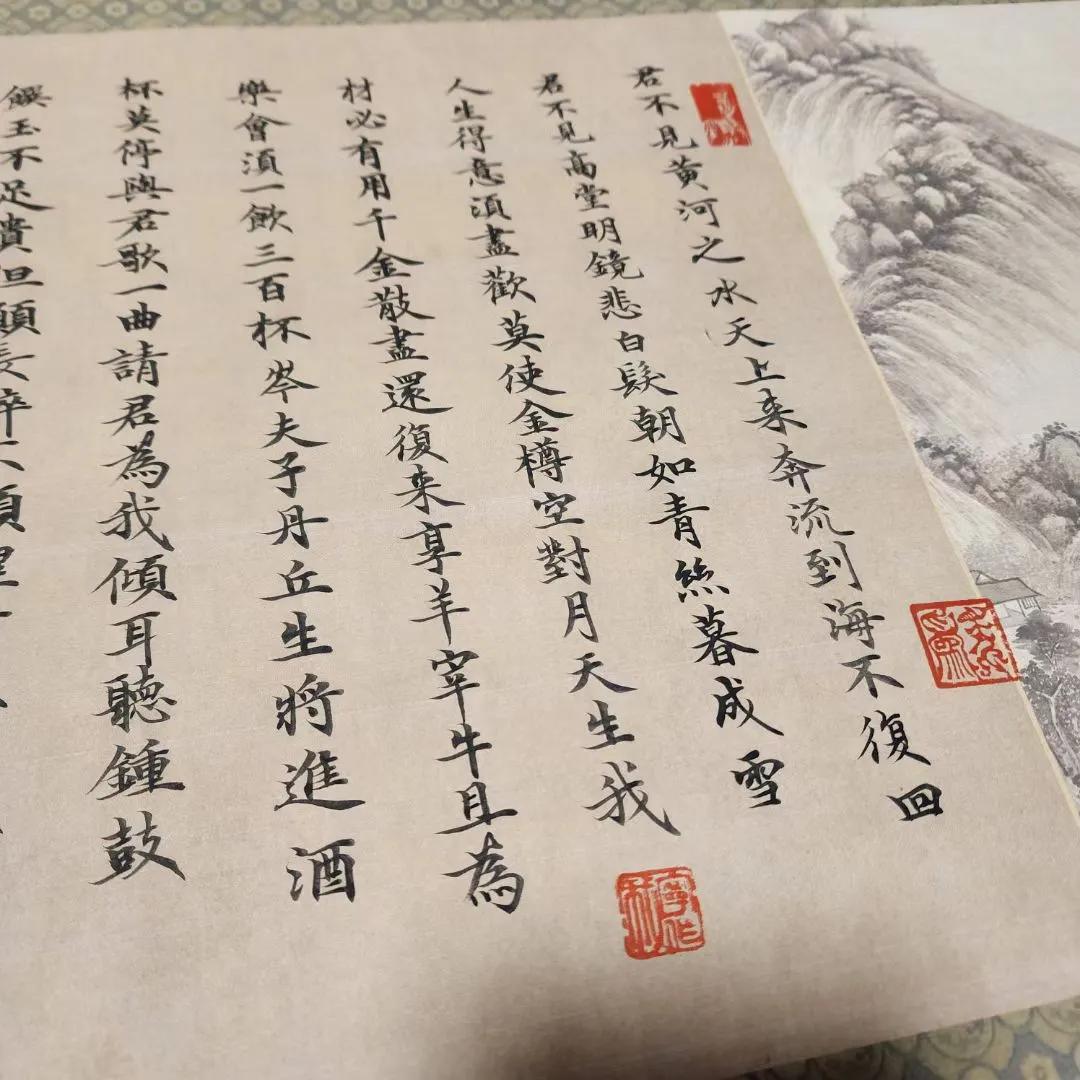 君不見黃河之水天上来奔流到海不復回
君不見高堂明鏡悲白髮朝如青絲暮成雪
人生得意須盡歡莫使金樽空對月天生我
材必有用千金散盡還復来烹羊宰牛且為
樂會須一飲三百杯岑夫子丹丘生將進酒
杯莫停與君歌一曲請君為我傾耳聽鍾鼓
饌玉不足貴但願長醉不